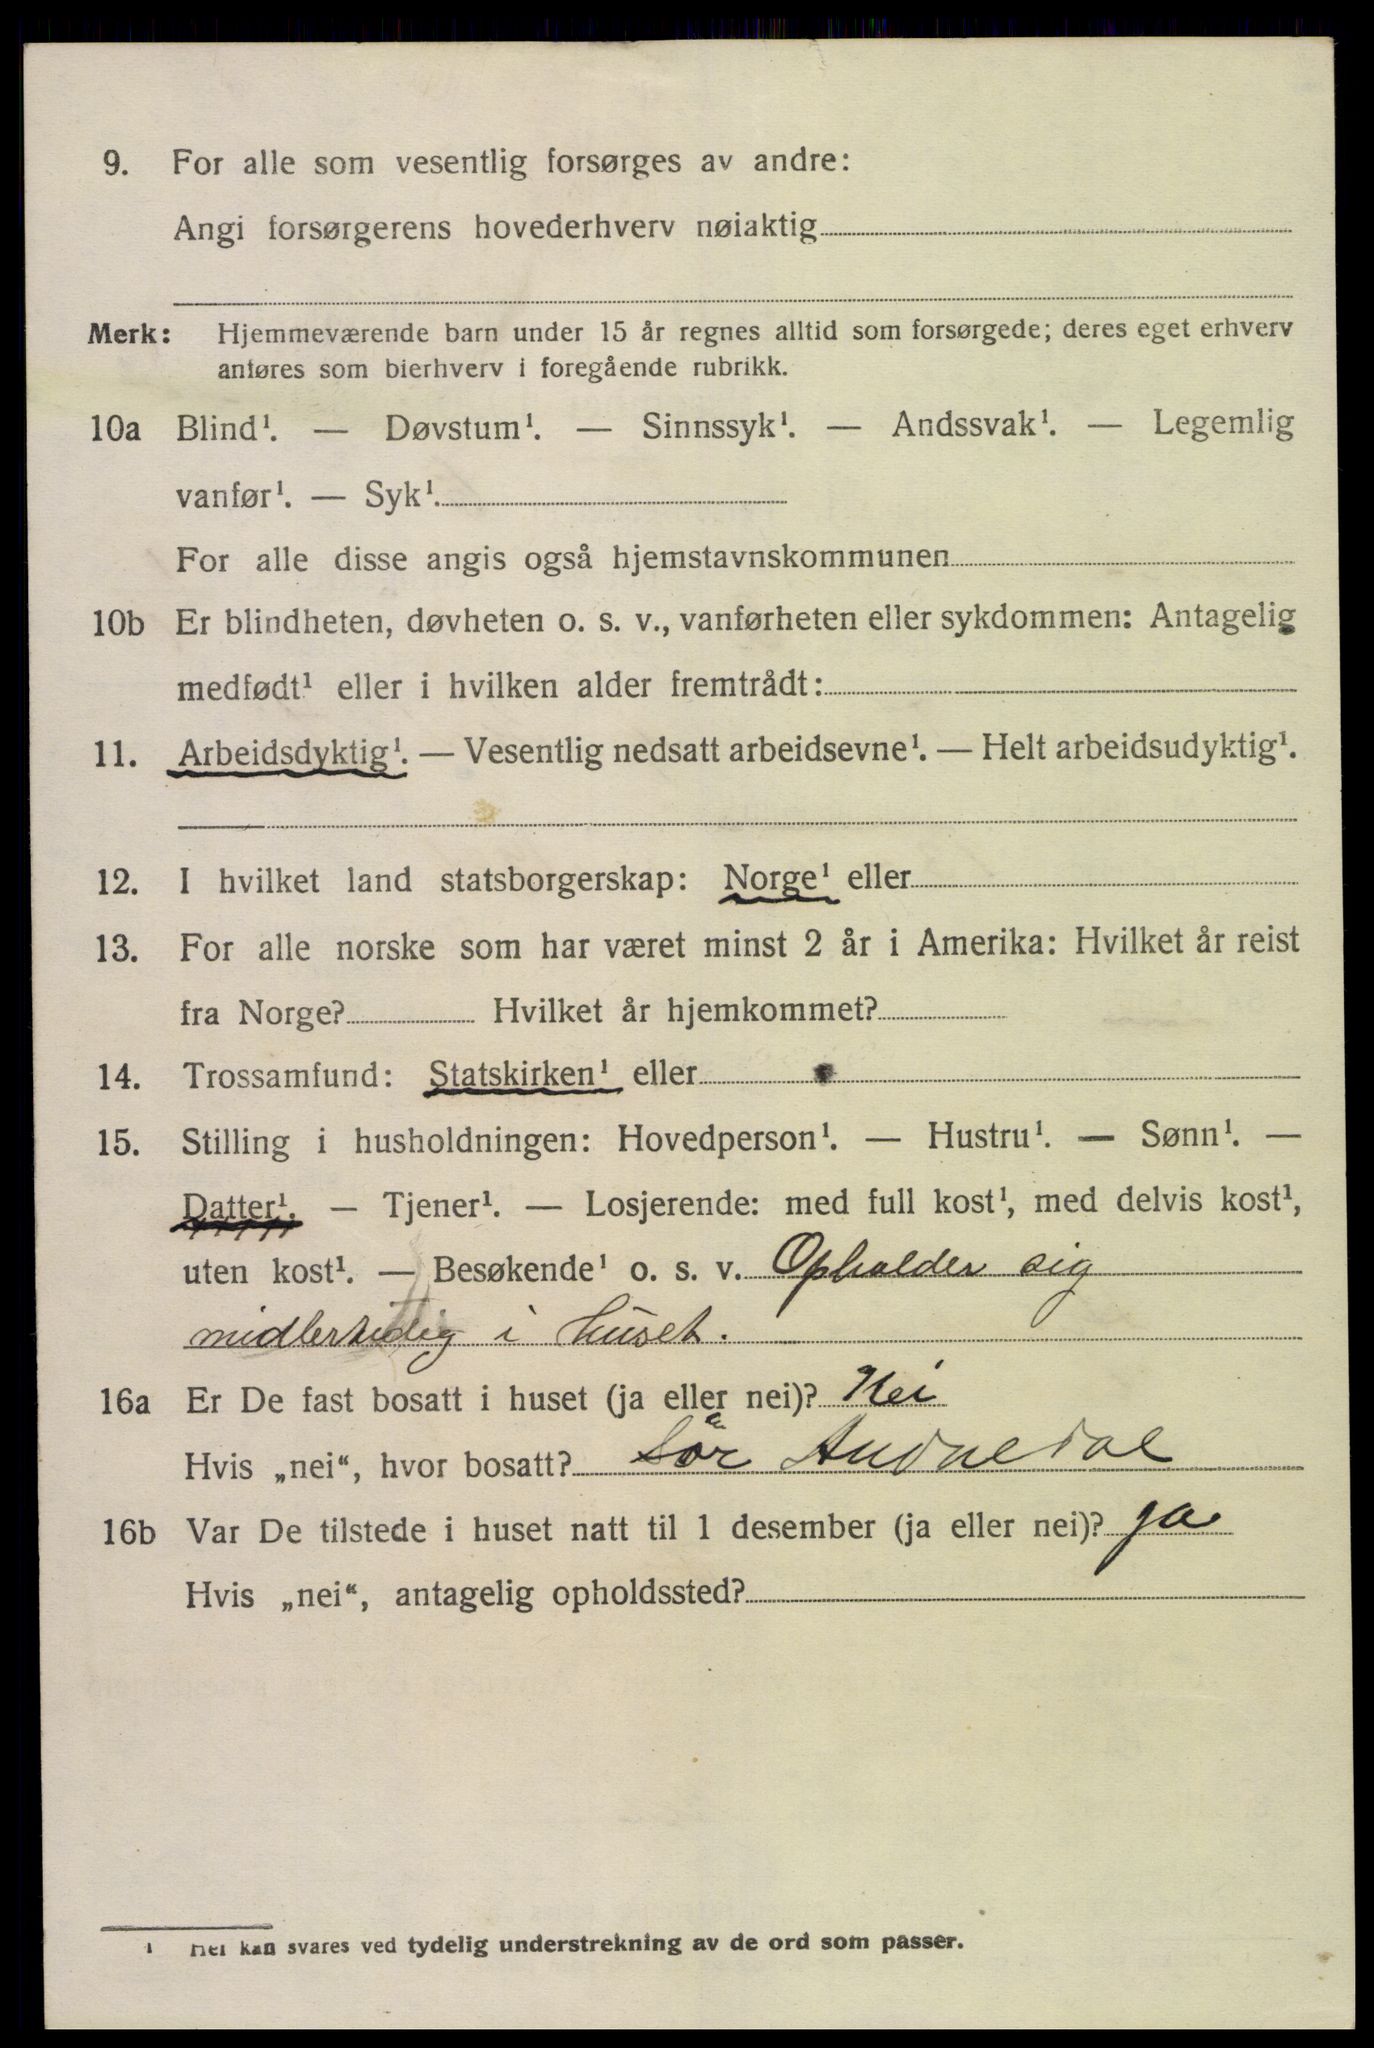 9. For alle som vesentlig forsørges av andre:
Angi forsørgerens hovederhverv nøiaktig
Merk: Hjemmeværende barn under 15 år regnes alltid som forsørgede; deres eget erhverv
anføres som bierhverv i foregående rubrikk.
10a Blind¹. — Døvstum¹. — Sinnssyk¹. — Andssvak¹. — Legemlig
vanfør¹. — Syk¹.
For alle disse angis også hjemstavnskommunen
10b Er blindheten, døvheten o. s. v., vanførheten eller sykdommen: Antagelig
medfødt¹ eller i hvilken alder fremtrådt:
11. Arbeidsdyktig¹. — Vesentlig nedsatt arbeidsevne¹. — Helt arbeidsudyktig¹.
12. I hvilket land statsborgerskap: Norge¹ eller
13. For alle norske som har været minst 2 år i Amerika: Hvilket år reist
fra Norge? Hvilket år hjemkommet?
14. Trossamfund: Statskirken¹ eller
15. Stilling i husholdningen: Hovedperson¹. — Hustru¹. — Sønn¹. —
Datter¹. — Tjener¹. — Losjerende: med full kost¹, med delvis kost¹,
uten kost¹. — Besøkende¹ o. s. v. Opholder sig
midlertidig i huset.
16a Er De fast bosatt i huset (ja eller nei)? Nei
Hvis „nei“, hvor bosatt? Sör
16b Var De tilstede i huset natt til 1 desember (ja eller nei)? ja
Hvis „nei“, antagelig opholdssted?
¹ Her kan svares ved tydelig understrekning av de ord som passer.